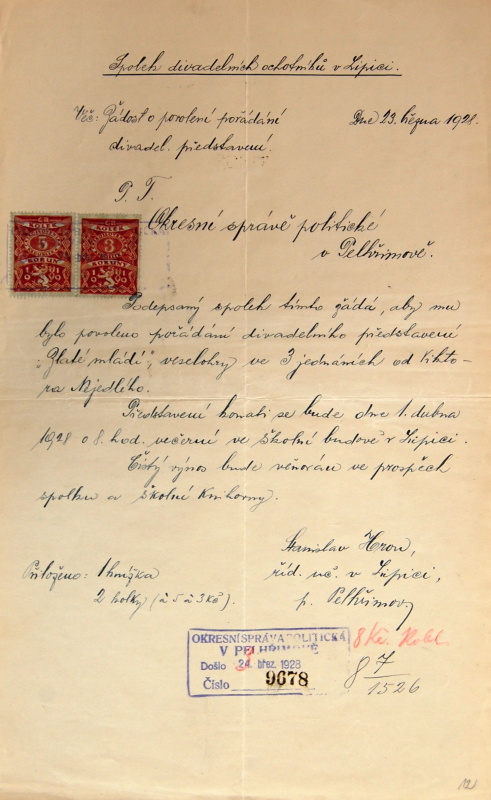 Spolek divadelních ochotníků v Lipici.
Věc: Žádost o povolení pořádání
Dne 23. března 1928.
divadel. představení.
P. T.
Okresní správě politické
v Pelhřimově.
KOLEK
5
KORUN
KOLEK
3
KORUNY
Podepsaný spolek tímto žádá, aby mu
bylo povoleno pořádání divadelního představení
"Zlaté mládí", veselohry ve 3 jednáních od Vikto-
ra Nejedlého.
Představení konati se bude dne 1. dubna
1928 o 8. hod. večerní ve školní budově v Lipici.
Čistý výnos bude věnován ve prospěch
spolku a školní knihovny.
Stanislav Hron,
říd. uč. v Lipici,
p. Pelhřimov
Přiloženo: 1 knížka
2 kolky (à 5 à 3 kč).
OKRESNÍ SPRÁVA POLITICKÁ
V PELHŘIMOVĚ
Došlo 24. břez. 1928
Číslo 9678
8 Kč. kolk
8 7/1526
12